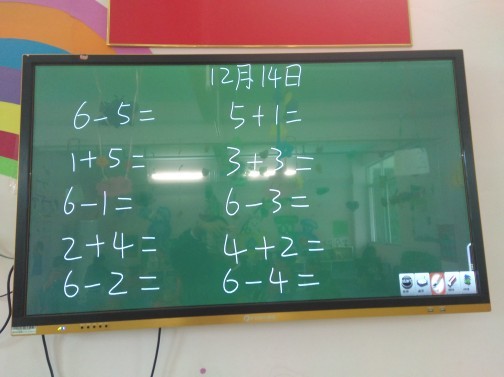 12月14日
6-5= 5+1=
1+5= 3+3=
6-1= 6-3=
2+4= 4+2=
6-2= 6-4=